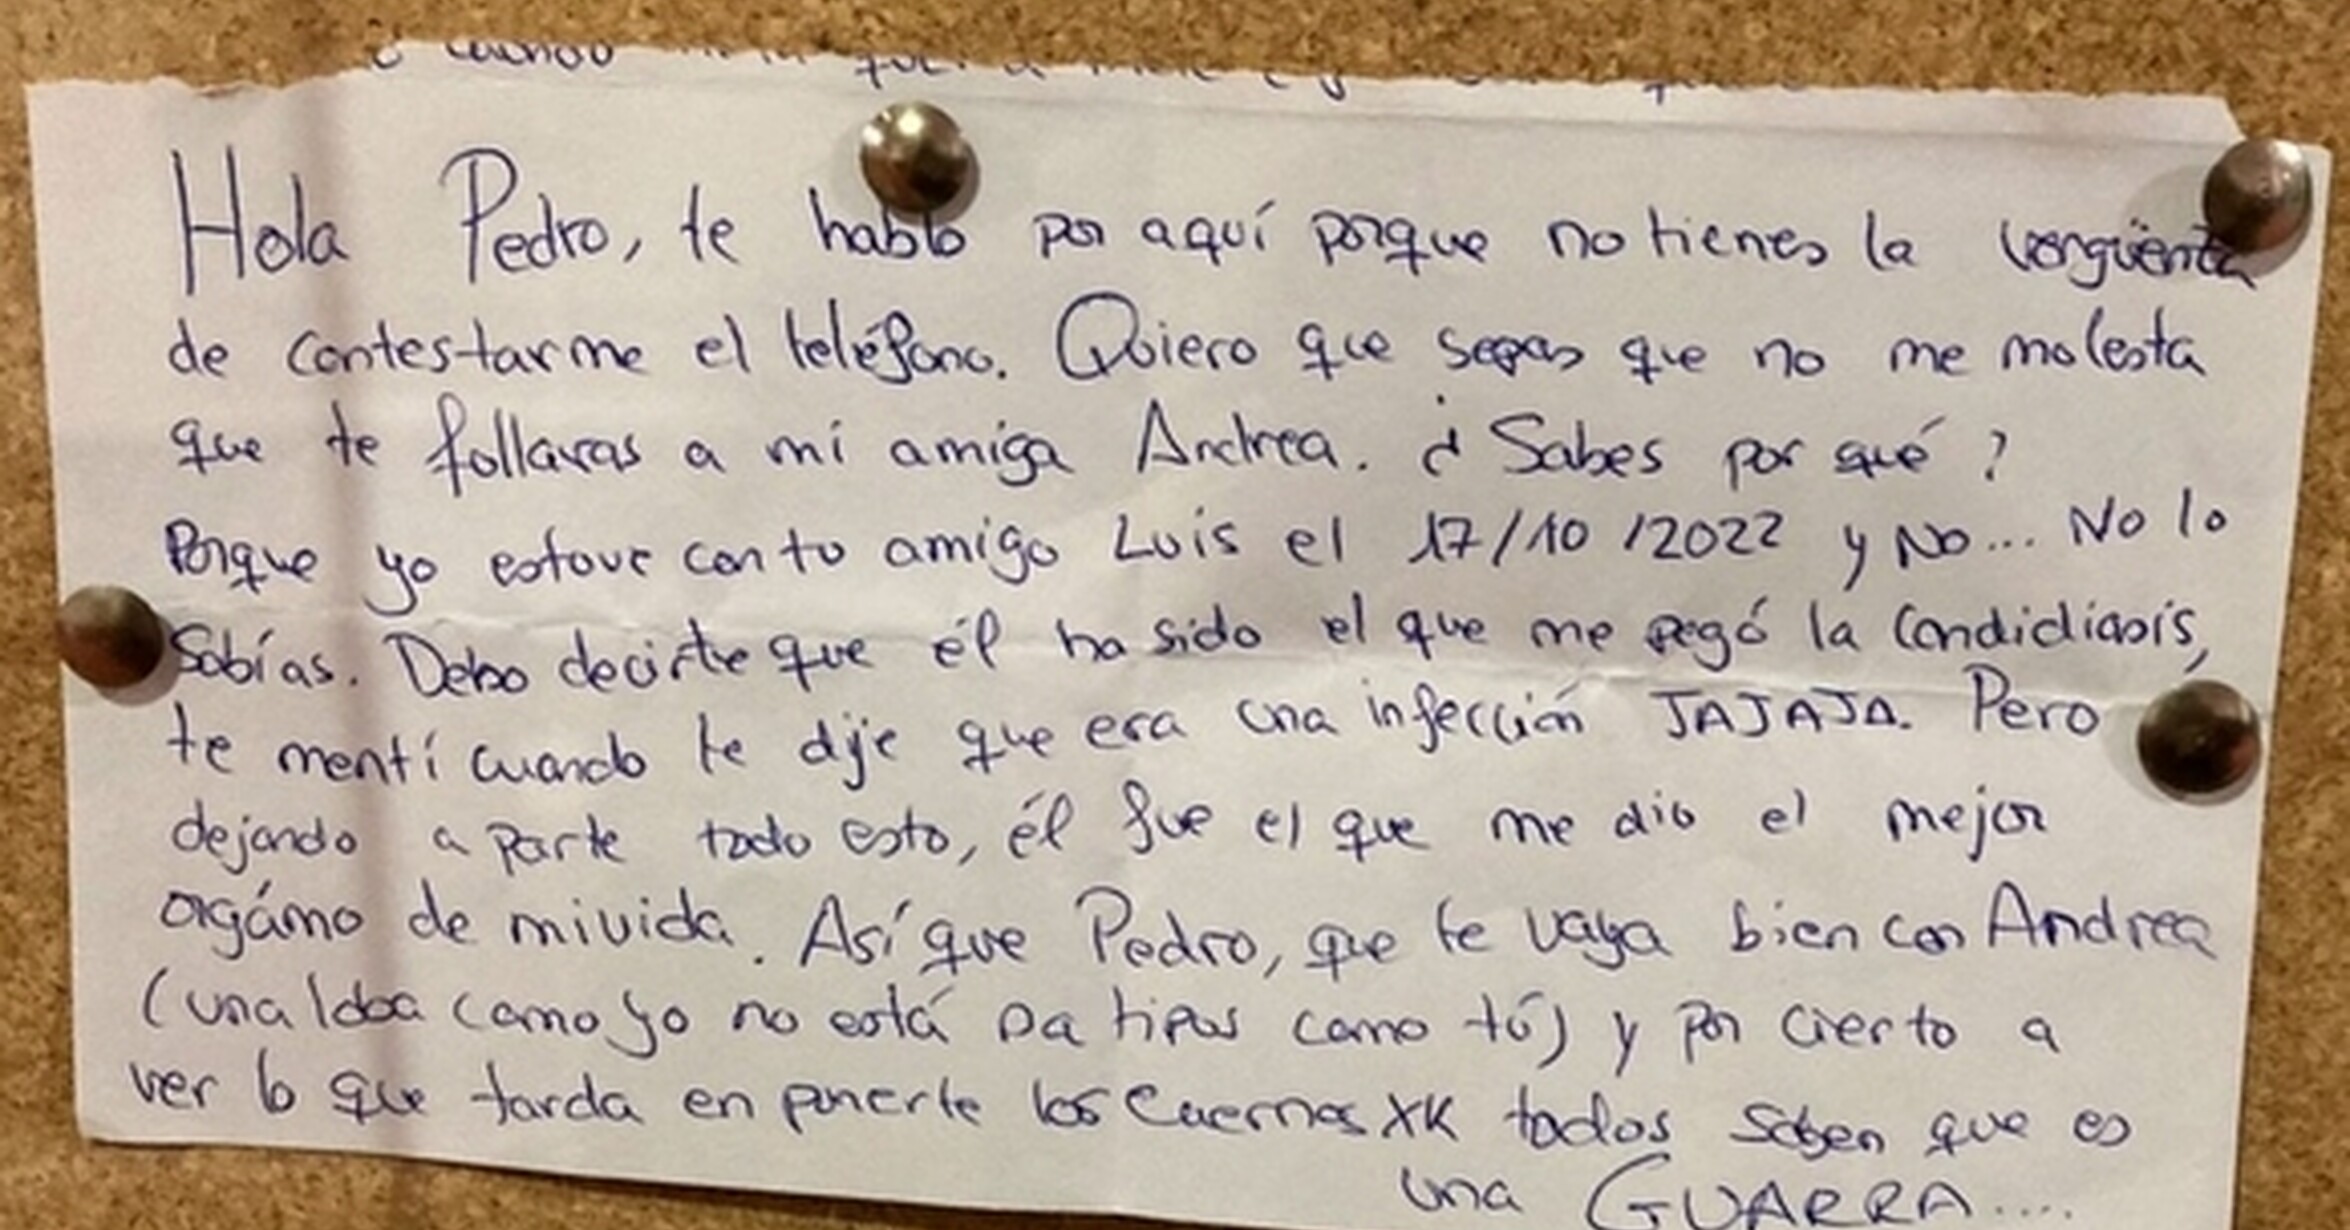 Hola Pedro, te hablo por aquí porque no tienes la vergüenza
de contestarme el teléfono. Quiero que sepas que no me molesta
que te follaras a mi amiga Andrea. ¿Sabes por qué?
Porque yo estove con tu amigo Luis el 17/10/2022 y No... No lo
Sabías. Debo decirte que él ha sido el que me pegó la Condidiasis,
te mentí cuando te dije que era una infección JAJAJA. Pero
dejando a parte todo esto, él fue el que me dio el mejor
orgámo de mi vida. Así que Pedro, que te vaya bien con Andrea
(una loba como yo no está pa tipos como tú) y por cierto a
ver lo que tarda en ponerte los Cuernos XK todos saben que es
una GUARRA....